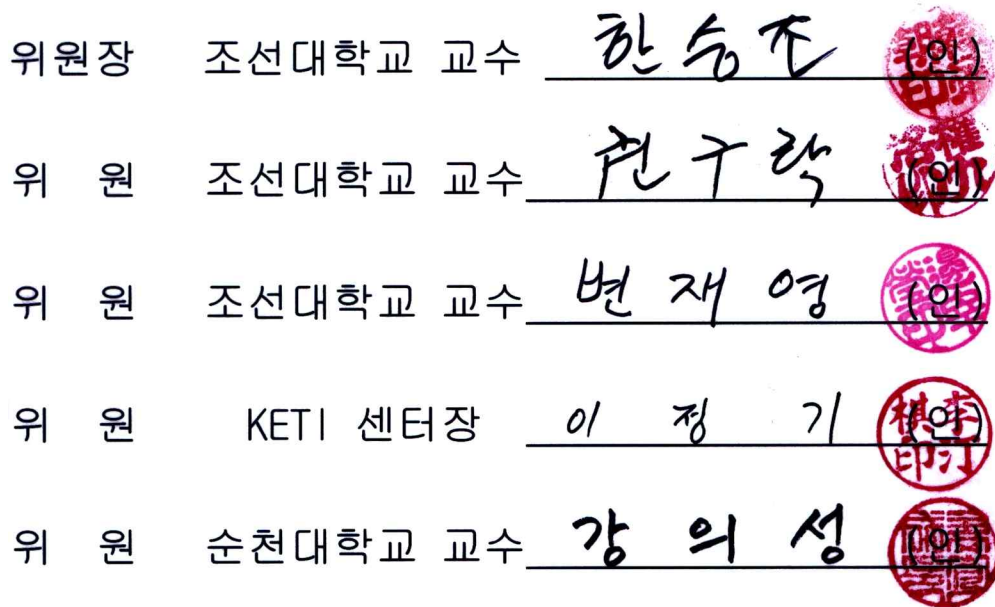 위원장 조선대학교 교수 한승조 (인)
위 원 조선대학교 교수 권구락 (인)
위 원 조선대학교 교수 변재영 (인)
위 원 KETI 센터장 이정기 (인)
위 원 순천대학교 교수 강의성 (인)